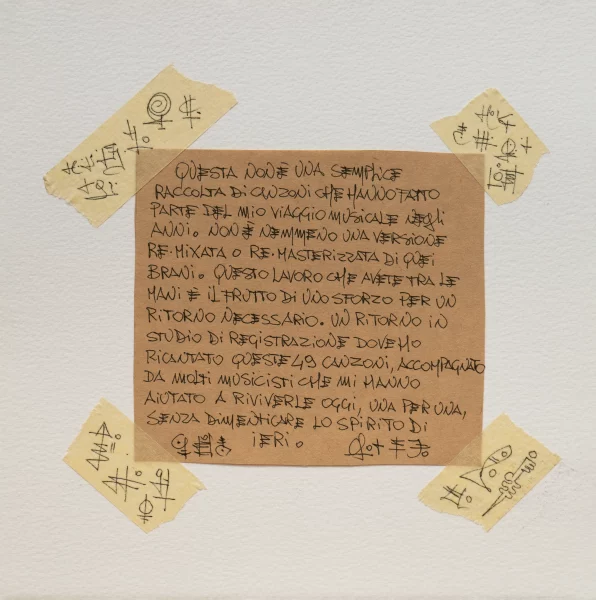 QUESTA NON È UNA SEMPLICE
RACCOLTA DI CANZONI CHE HANNO FATTO
PARTE DEL MIO VIAGGIO MUSICALE NEGLI
ANNI. NON È NEMMENO UNA VERSIONE
RE-MIXATA O RE-MASTERIZZATA DI QUEI
BRANI. QUESTO LAVORO CHE AVETE TRA LE
MANI È IL FRUTTO DI UNO SFORZO PER UN
RITORNO NECESSARIO. UN RITORNO IN
STUDIO DI REGISTRAZIONE DOVE HO
RICANTATO QUESTE 49 CANZONI, ACCOMPAGNATO
DA MOLTI MUSICISTI CHE MI HANNO
AIUTATO A RIVIVERLE OGGI, UNA PER UNA,
SENZA DIMENTICARE LO SPIRITO DI
IERI.